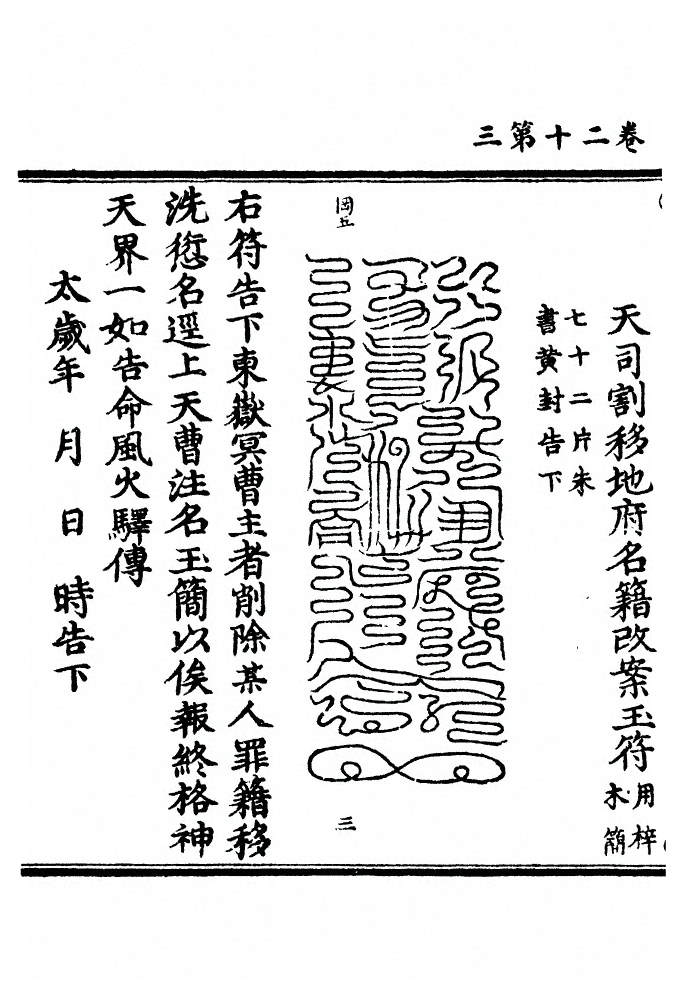 卷二十第三
天司割移地府名籍改案玉符用梓木簡
七十二片朱
書黄封告下
岡五
三
右符告下東嶽冥曹主者削除某人罪籍移
洗愆名逕上天曹注名玉簡以俟報終格神
天界一如告命風火驛傳
太歲年 月 日 時告下